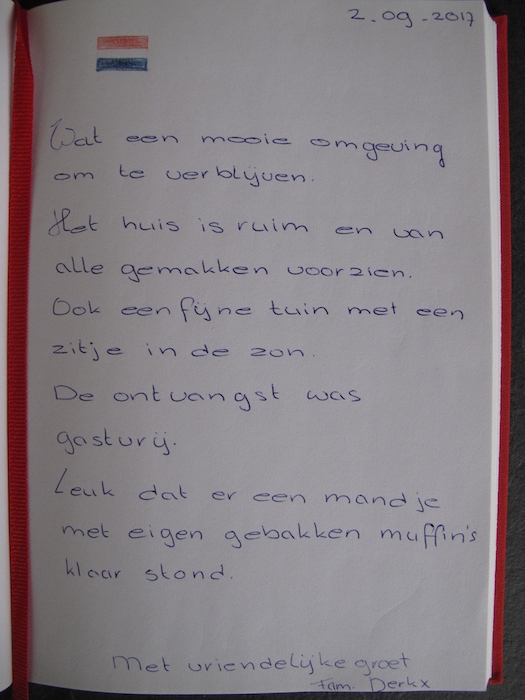 2.09.2017
Wat een mooie omgeving
om te verblijven.
Het huis is ruim en van
alle gemakken voorzien.
Ook een fijne tuin met een
zitje in de zon.
De ontvangst was
gastvrij.
Leuk dat er een mandje
met eigen gebakken muffin's
klaar stond.
Met vriendelijke groet
Fam. Derkx